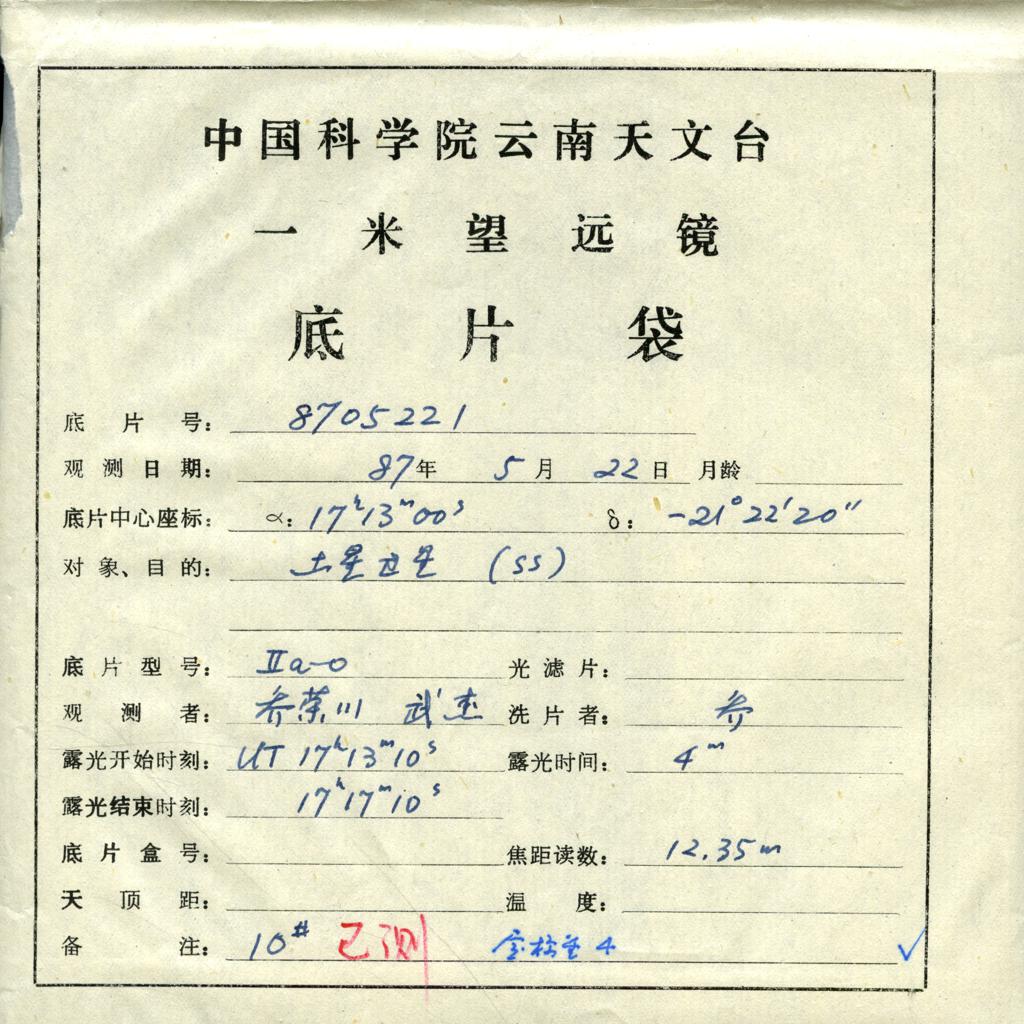 中国科学院云南天文台
一米望远镜
底片袋
底片号: 8705221
观测日期: 87年 5月 22日 月龄
底片中心座标: α: 17ʰ13ᵐ00ˢ δ: -21°22′20″
对象、目的: 土星卫星 (SS)
底片型号: IIa-O 光滤片:
观测者: 乔荣川 武杰 洗片者: 乔
露光开始时刻: UT 17ʰ13ᵐ10ˢ 露光时间: 4ᵐ
露光结束时刻: 17ʰ17ᵐ10ˢ
底片盒号: 焦距读数: 12.35m
天顶距: 温度:
备注: 10# 已测 4 ✓